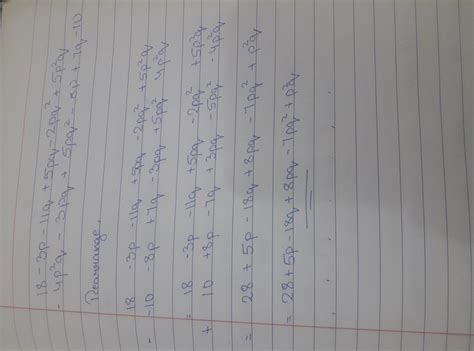 18 - 3p - 11q + 5pq - 2pq² + 5p²q
- 4p²q - 3pq + 5pq² - 8p + 7q - 10
Rearrange.
18 - 3p - 11q + 5pq - 2pq² + 5p²q
- -10 - 8p + 7q - 3pq + 5pq² 4p²q
= 18 - 3p - 11q + 5pq - 2pq² + 5p²q
+ 10 + 8p - 7q + 3pq - 5pq² - 4p²q
= 28 + 5p - 18q + 8pq - 7pq² + p²q
= 28 + 5p - 18q + 8pq - 7pq² + p²q